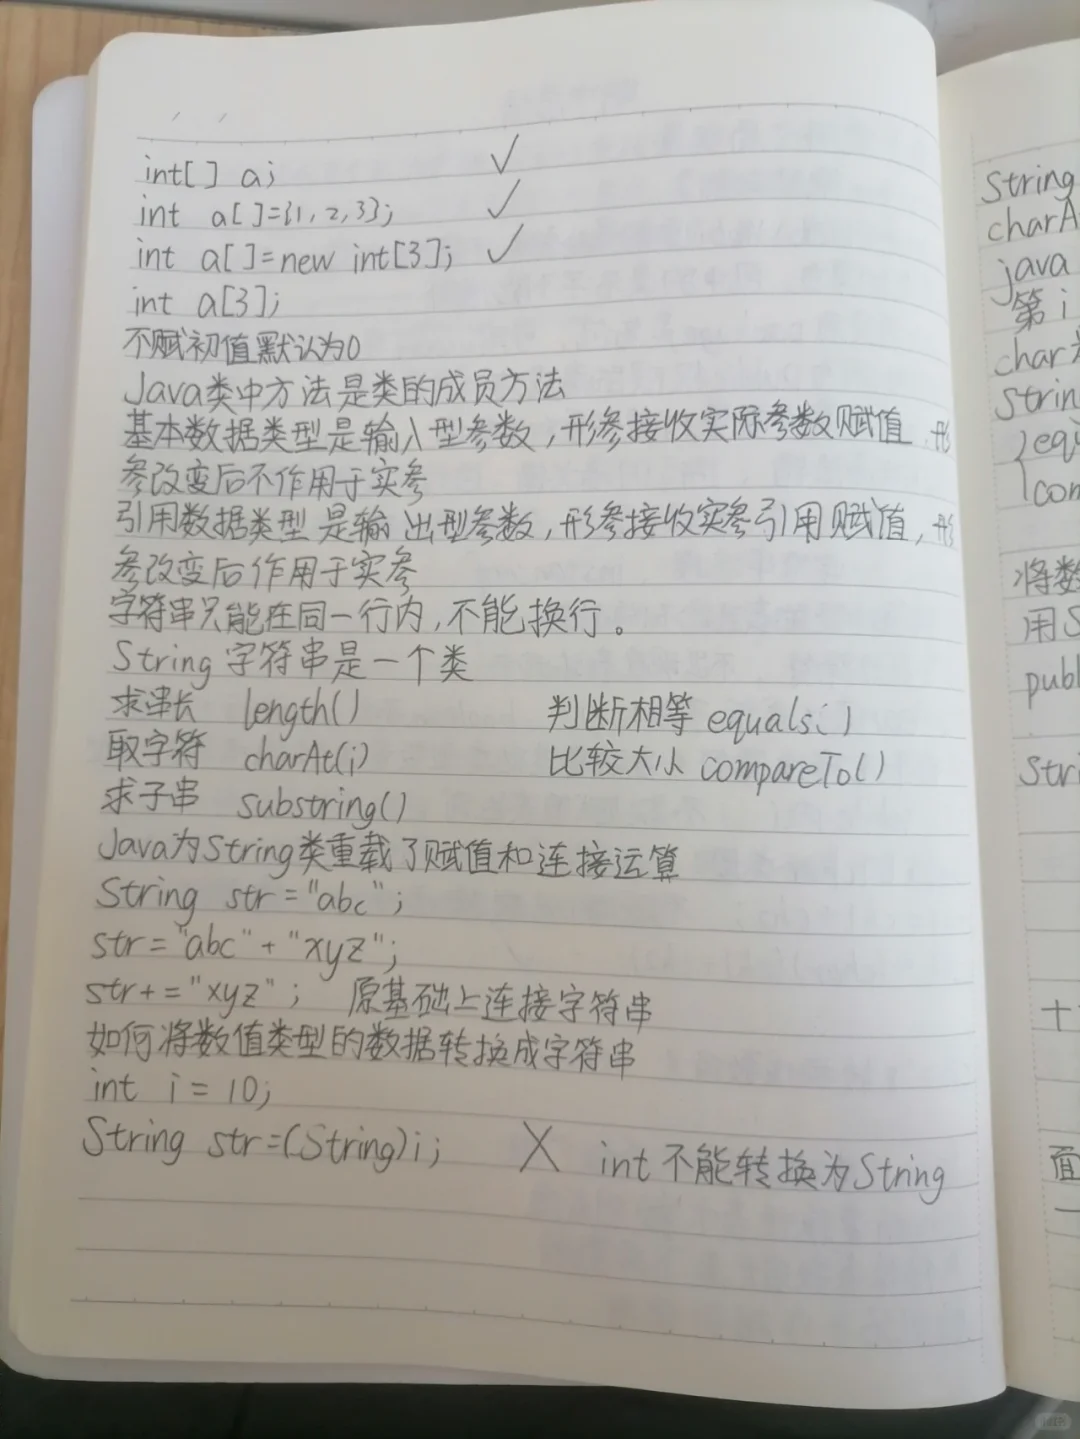 int[] a; ✓
int a[]={1,2,3}; ✓
int a[]=new int[3]; ✓
int a[3];
不赋初值默认为0
Java类中方法是类的成员方法
基本数据类型是输入型参数,形参接收实际参数赋值,形
参改变后不作用于实参
引用数据类型是输出型参数,形参接收实参引用赋值,形
参改变后作用于实参
字符串只能在同一行内,不能换行。
String字符串是一个类
求串长 length() 判断相等 equals()
取字符 charAt(i) 比较大小 compareTo()
求子串 substring()
Java为String类重载了赋值和连接运算
String str="abc";
str="abc"+"xyz";
str+="xyz"; 原基础上连接字符串
如何将数值类型的数据转换成字符串
int i=10;
String str=(String)i; X int不能转换为String
String
charA
java
第i
char
Strin
equ
com
将数
用S
publ
Stri
十
面
一